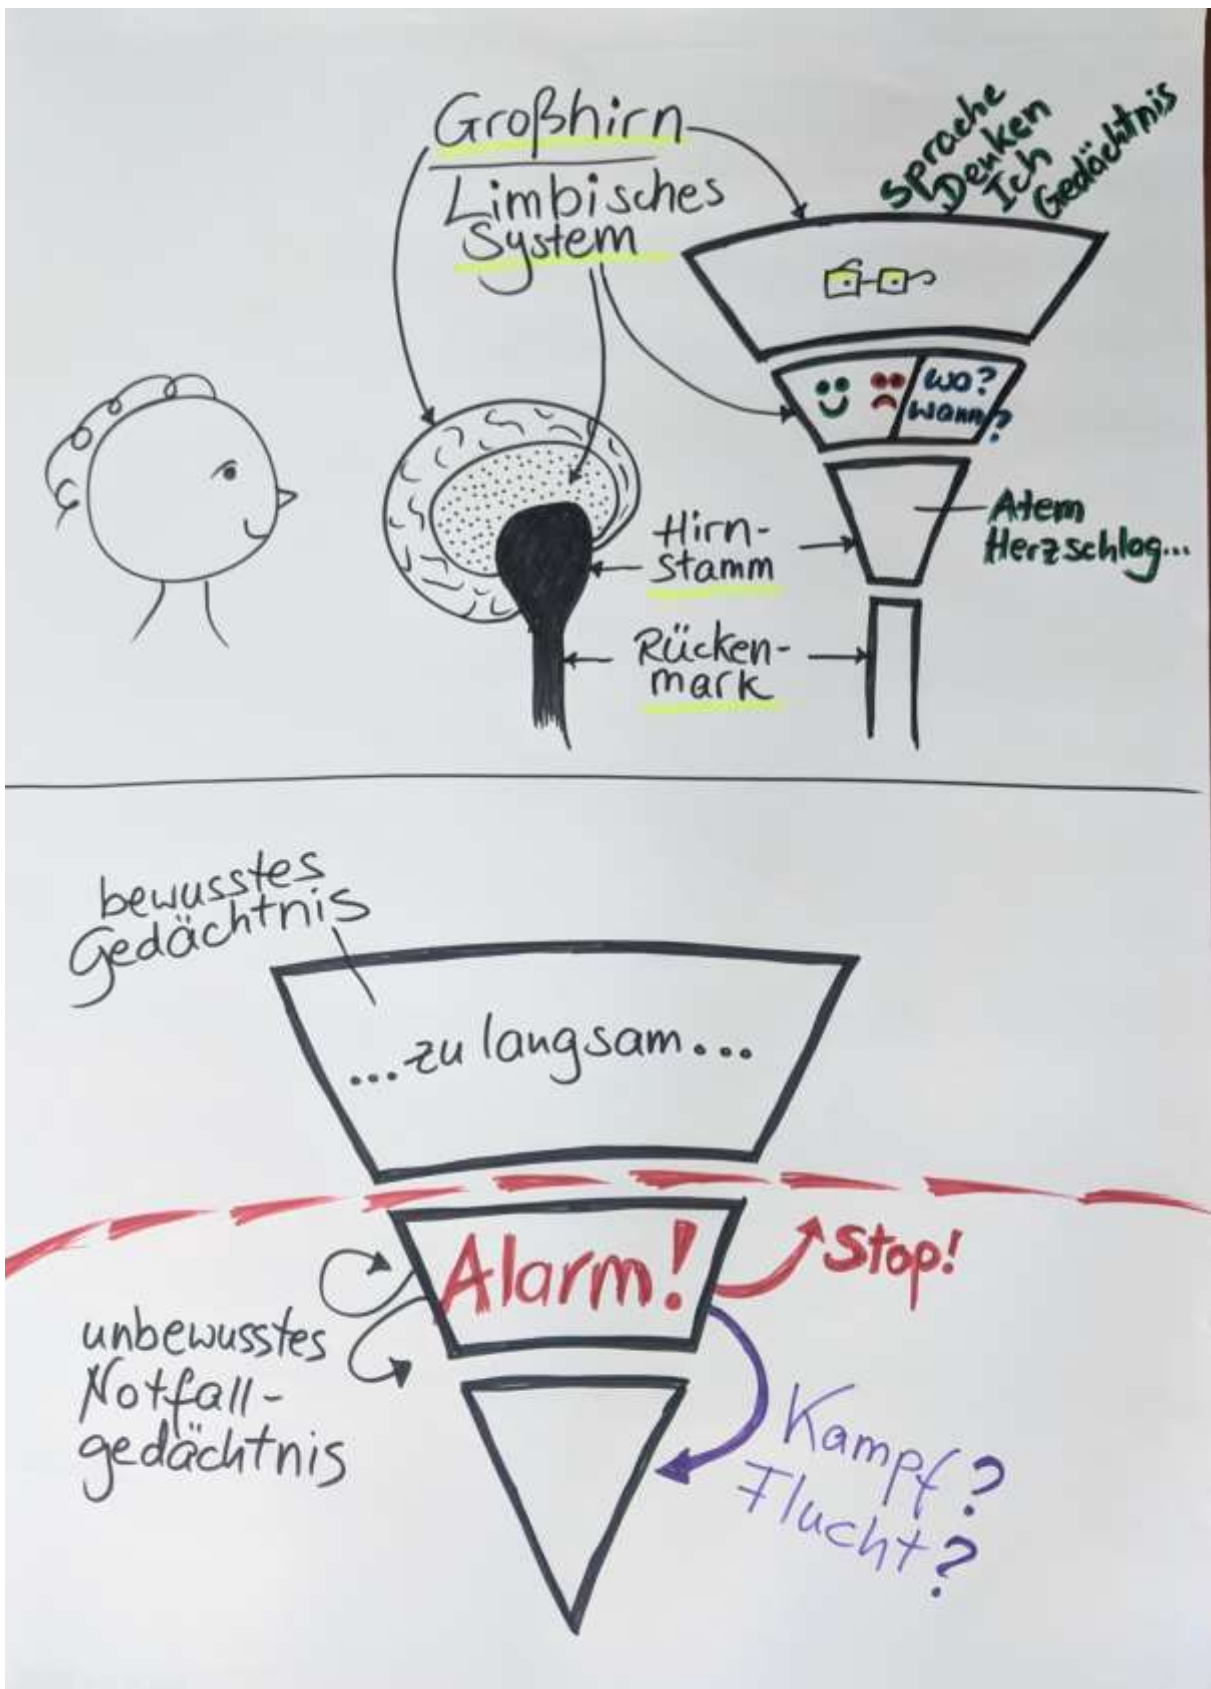 Großhirn
Limbisches
System
Sprache
Denken
Ich
Gedächtnis
wo?
wann?
Hirn-
stamm
Atem
Herzschlag...
Rücken-
mark
bewusstes
Gedächtnis
...zu langsam...
Alarm!
Stop!
unbewusstes
Notfall-
gedächtnis
Kampf?
Flucht?